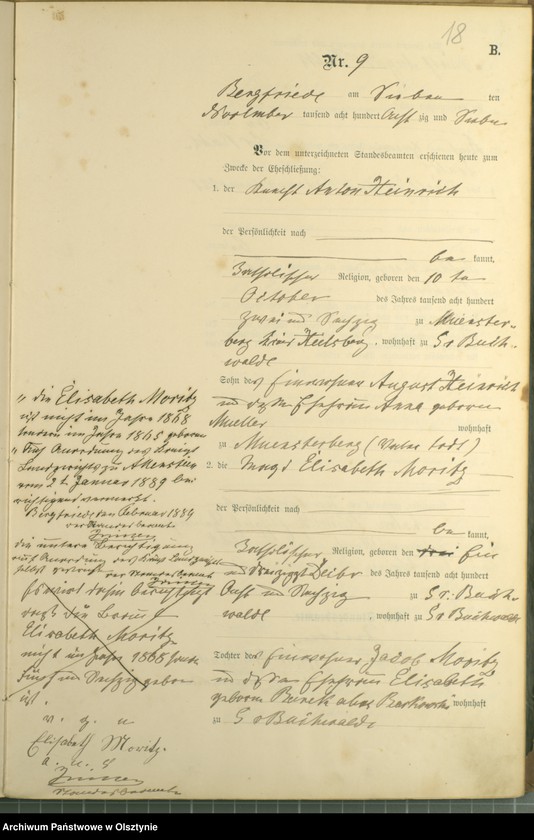 18
B.
Nr. 9
Bergfriede am Sieben ten
November tausend acht hundert acht zig und Sieben
Vor dem unterzeichneten Standesbeamten erschienen heute zum
Zwecke der Eheschließung:
1. der Knecht Anton Heinrich
der Persönlichkeit nach
be kannt,
katholischer Religion, geboren den 10 ten
October des Jahres tausend acht hundert
zwei und Sechzig zu Muenster-
berg Kreis Heilsberg, wohnhaft zu Gr Buch-
walde
Sohn des Einwohner August Heinrich
und dessen Ehefrau Anna geboren
Mueller wohnhaft
zu Muensterberg (Vater todt)
2. die Magd Elisabeth Moritz
der Persönlichkeit nach
be kannt,
katholischer Religion, geboren den drei Ein
und dreizigst Dcbr des Jahres tausend acht hundert
Acht und Sechzig zu Gr: Buch-
walde, wohnhaft zu Gr Buchwalde
Tochter des Einwohner Jacob Moritz
und dessen Ehefrau Elisabeth
geborne wohnhaft
zu Gr Buchwalde
"die Elisabeth Moritz
ist nicht im Jahre 1868
sondern im Jahre 1865 geboren
Auf Anordnung des Königl
Landgerichts zu Allenstein
vom 2t. Januar 1889 be
richtigend vermerkt.
Bergfriede den Februar 1889
der Standesbeamte
die untere Berichtigung
auf Anordnung des Landgerichts
der Standesbeamte
Es wird daher berichtigt
daß die Braut
Elisabeth Moritz
nicht im Jahre 1868 sondern
Fünf und Sechzig geboren
ist.
v. g. u
Elisabeth Moritz.
a. u. s
Standesbeamte
Archiwum Państwowe w Olsztynie